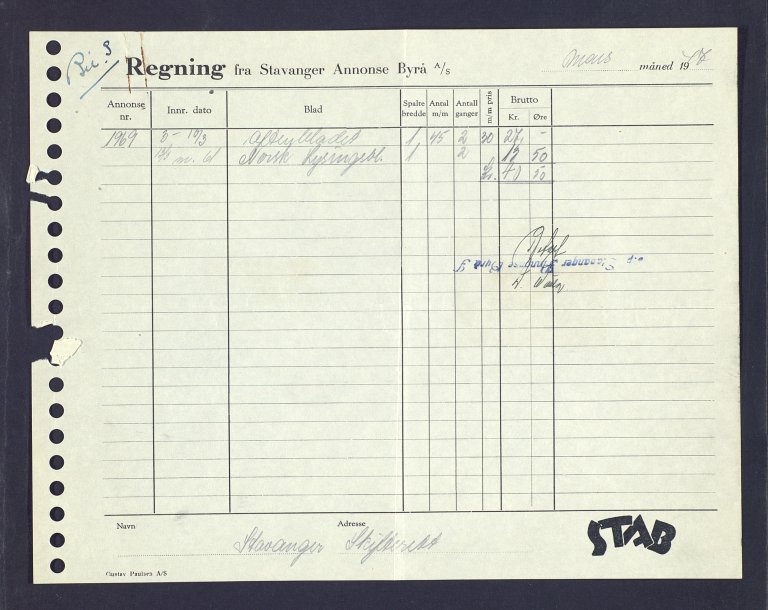 Bil. 9
Regning fra Stavanger Annonse Byrå A/S mars måned 1947
Annonse nr. Innr. dato Blad Spalte bredde Antal m/m Antall ganger m/m pris Brutto Kr. Øre
1969 3 - 10/3 Aftenbladet 1 45 2 30 27, -
Norsk Lysingsbl. 1 2 13 50
Kr. 40 50
Betalt
e.f. Stavanger Annonse Byrå
Navn Adresse
Stavanger Skifterett
STAB
Gustav Paulsen A/S